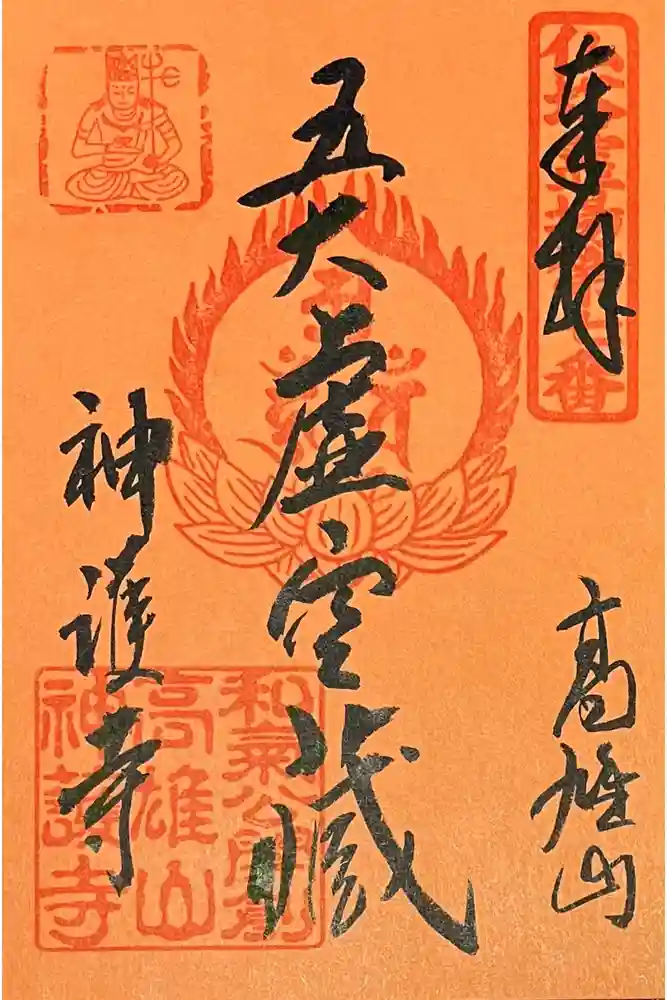 奉拝
高雄山
五大虚空蔵
神護寺
番
和氣公
高雄山
神護寺